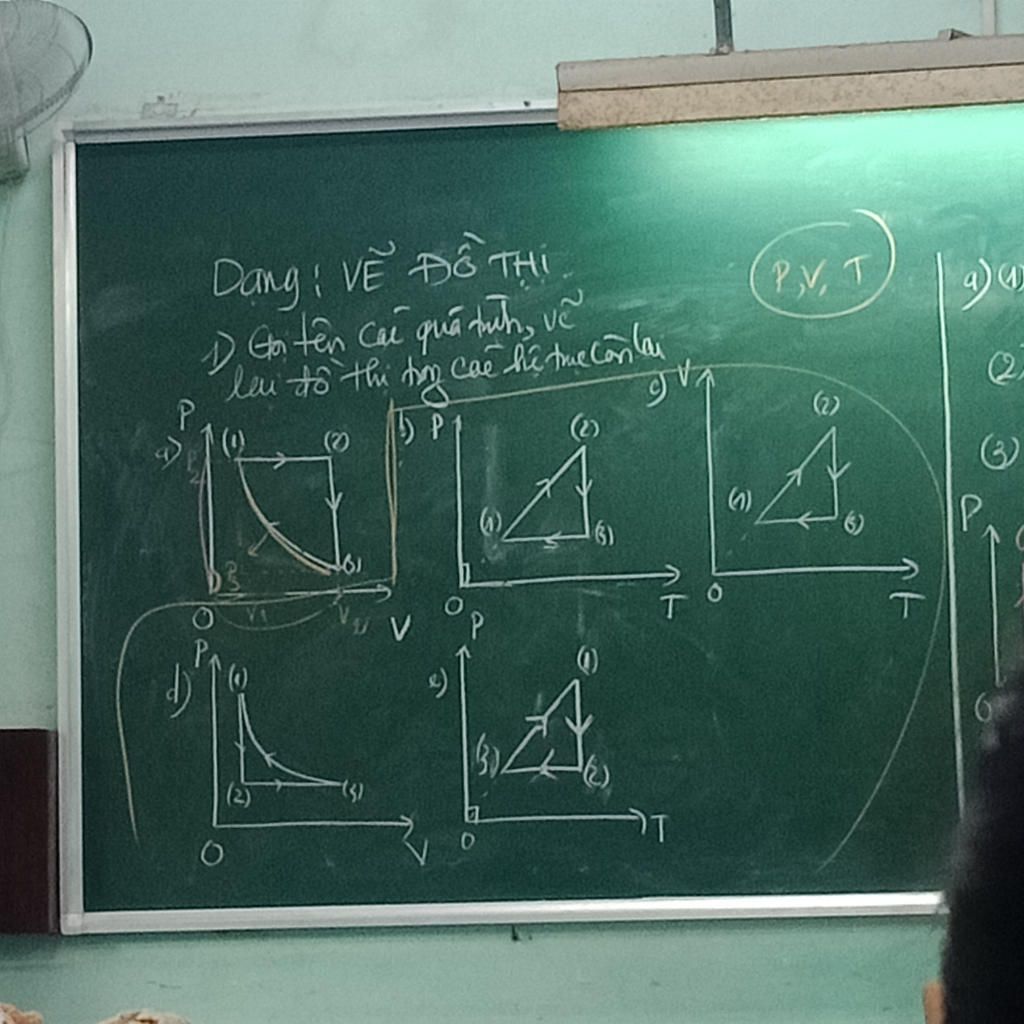 Dạng: VẼ ĐỒ THỊ
P, V, T
1) Gọi tên các quá trình, vẽ
lại đồ thị trong các hệ trục còn lại
a) P (1) (2) (3) O V1 V
b) P (1) (2) (3) O T
c) V (1) (2) (3) O T
d) P (1) (2) (3) O V
e) P (1) (2) (3) O T
a) (1)
(2)
(3)
P